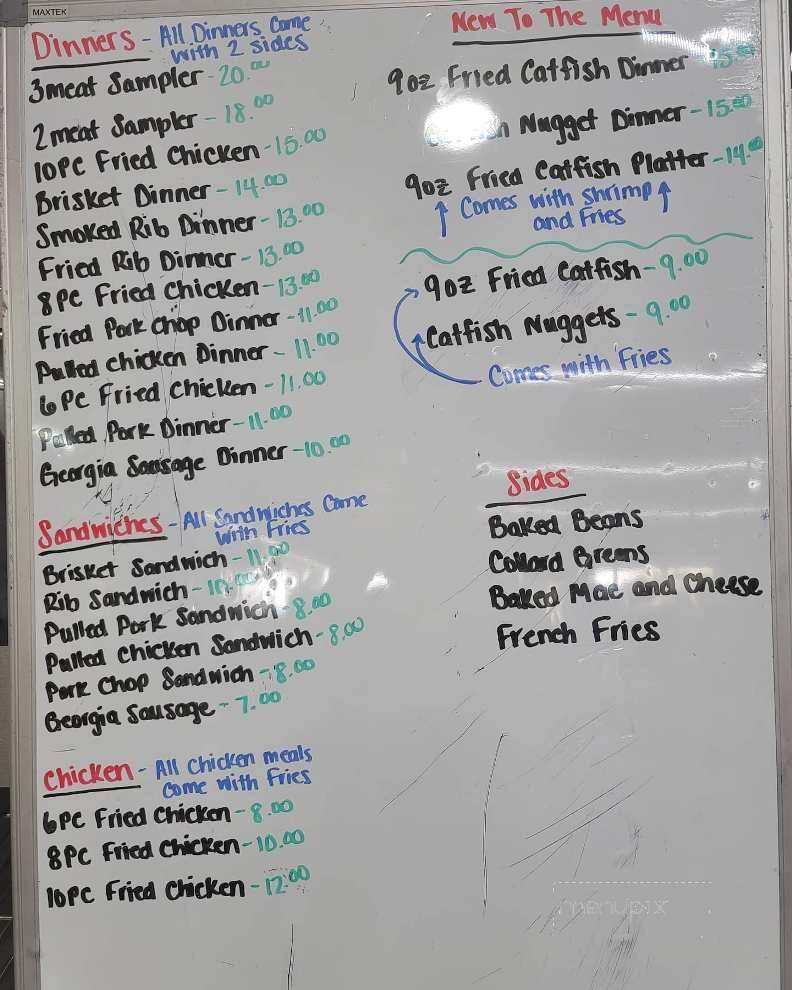 MAXTEK
Dinners - All Dinners Come
with 2 sides
3meat Sampler - 20.00
2meat Sampler - 18.00
10PC Fried Chicken - 15.00
Brisket Dinner - 14.00
Smoked Rib Dinner - 13.00
Fried Rib Dinner - 13.00
8PC Fried Chicken - 13.00
Fried Pork Chop Dinner - 11.00
Pulled chicken Dinner - 11.00
6PC Fried Chicken - 11.00
Pulled Pork Dinner - 11.00
Georgia Sausage Dinner - 10.00
Sandwiches - All Sandwiches Come
with Fries
Brisket Sandwich - 11.00
Rib Sandwich - 10.00
Pulled Pork Sandwich - 8.00
Pulled Chicken Sandwich - 8.00
Pork Chop Sandwich - 8.00
Georgia Sausage - 7.00
Chicken - All Chicken meals
come with Fries
6PC Fried Chicken - 8.00
8PC Fried Chicken - 10.00
10PC Fried Chicken - 12.00
New To The Menu
9oz Fried Catfish Dinner - 15.00
Nugget Dinner - 15.00
9oz Fried Catfish Platter - 14.00
Comes with Shrimp
and Fries
9oz Fried Catfish - 9.00
Catfish Nuggets - 9.00
Comes with Fries
Sides
Baked Beans
Collard Greens
Baked Mac and Cheese
French Fries
menupix